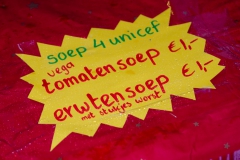 soep 4 unicef
vega
tomatensoep €1,-
erwtensoep €1,-
met stukjes worst